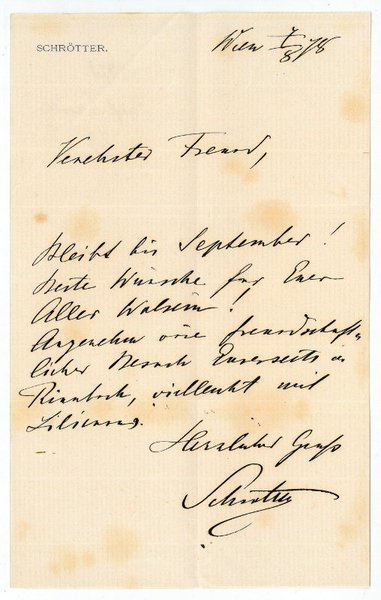 SCHRÖTTER.
Wien 7/8 78
Verehrter Freund,
Bleibt bis September!
Beste Wünsche für Euer
Aller Wolsein!
Angenehm wäre freundschaft=
licher Besuch Eurerseits in
vielleicht mit
Herzlicher Gruß
Schrötter